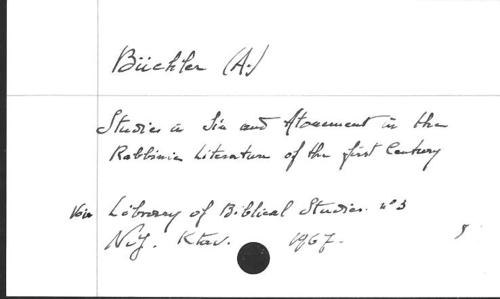 Büchler (A.)
Studies in Sin and Atonement in the
Rabbinic Literature of the first Century
Voir Library of Biblical Studies. n° 3
N.Y. Ktav. 1967.